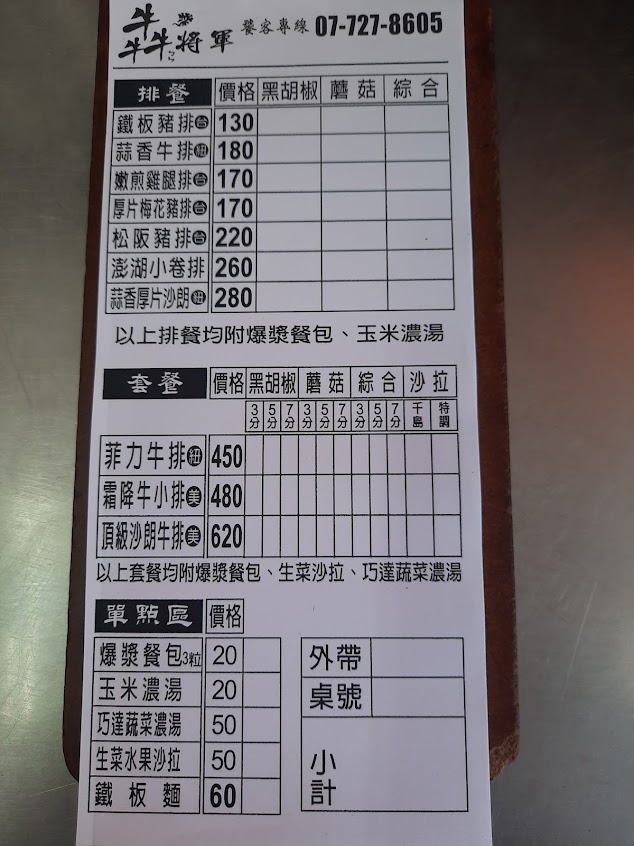 牛牛牛將軍 饕客專線 07-727-8605
排餐 價格 黑胡椒 蘑菇 綜合
鐵板豬排台 130
蒜香牛排紐 180
嫩煎雞腿排台 170
厚片梅花豬排台 170
松阪豬排台 220
澎湖小卷排 260
蒜香厚片沙朗紐 280
以上排餐均附爆漿餐包、玉米濃湯
套餐 價格 黑胡椒 蘑菇 綜合 沙拉
3分 5分 7分 3分 5分 7分 3分 5分 7分 千島 特調
菲力牛排紐 450
霜降牛小排美 480
頂級沙朗牛排美 620
以上套餐均附爆漿餐包、生菜沙拉、巧達蔬菜濃湯
單點區 價格
爆漿餐包3粒 20
玉米濃湯 20
巧達蔬菜濃湯 50
生菜水果沙拉 50
鐵板麵 60
外帶
桌號
小計